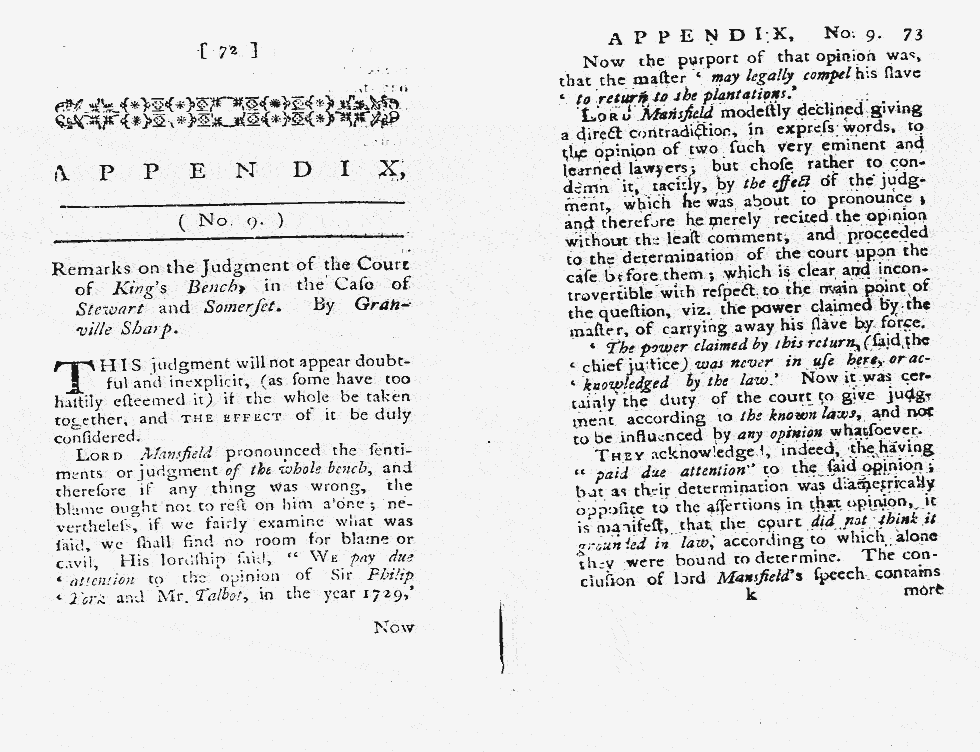 [ 72 ]
A P P E N D I X,
( No. 9. )
Remarks on the Judgment of the Court
of King's Bench, in the Caſe of
Stewart and Somerſet. By Gran-
ville Sharp.
THIS judgment will not appear doubt-
ful and inexplicit, (as ſome have too
haſtily eſteemed it) if the whole be taken
together, and THE EFFECT of it be duly
conſidered.
LORD Mansfield pronounced the ſenti-
ments or judgment of the whole bench, and
therefore if any thing was wrong, the
blame ought not to reſt on him alone; ne-
vertheleſs, if we fairly examine what was
ſaid, we ſhall find no room for blame or
cavil, His lordſhip ſaid, “ WE pay due
‘ attention to the opinion of Sir Philip
‘ York and Mr. Talbot, in the year 1729,’
Now
APPENDIX, No. 9. 73
Now the purport of that opinion was,
that the maſter ‘ may legally compel his ſlave
‘ to return to the plantations.’
LORD Mansfield modeſtly declined giving
a direct contradiction, in expreſs words, to
the opinion of two ſuch very eminent and
learned lawyers; but choſe rather to con-
demn it, tacitly, by the effect of the judg-
ment, which he was about to pronounce;
and therefore he merely recited the opinion
without the leaſt comment, and proceeded
to the determination of the court upon the
caſe before them; which is clear and incon-
trovertible with reſpect to the main point of
the queſtion, viz. the power claimed by the
maſter, of carrying away his ſlave by force.
‘ The power claimed by this return, (ſaid the
‘ chief juſtice) was never in uſe here, or ac-
‘ knowledged by the law.’ Now it was cer-
tainly the duty of the court to give judg-
ment according to the known laws, and not
to be influenced by any opinion whatſoever.
THEY acknowledge, indeed, the having
“ paid due attention” to the ſaid opinion;
but as their determination was diametrically
oppoſite to the aſſertions in that opinion, it
is manifeſt, that the court did not think it
grounded in law, according to which alone
they were bound to determine. The con-
cluſion of lord Mansfield's ſpeech contains
k more